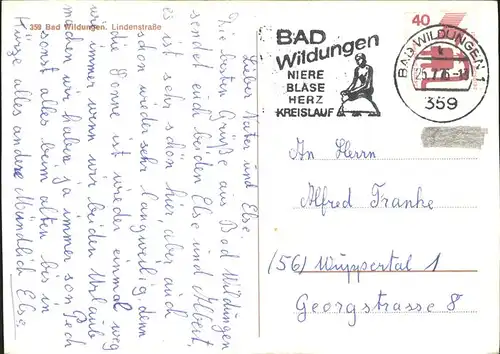 359 Bad Wildungen. Lindenstraße
Lieber Vater und Else.
Die besten Grüße aus Bad Wildungen
sendet euch beiden Else und Albert,
es ist sehr schön hier, aber auch
schon wieder sehr langweilig, denn
die Sonne ist wieder einmal weg
wir immer wenn wir beiden Urlaub
machen wir haben ja immer son Pech
sonst alles beim alten bis in
Kürze alles andere Mündlich Else.
BAD
Wildungen
NIERE
BLASE
HERZ
KREISLAUF
BAD WILDUNGEN 1
359
40
An Herrn
Alfred Franke
(56) Wuppertal 1
Georgstrasse 8